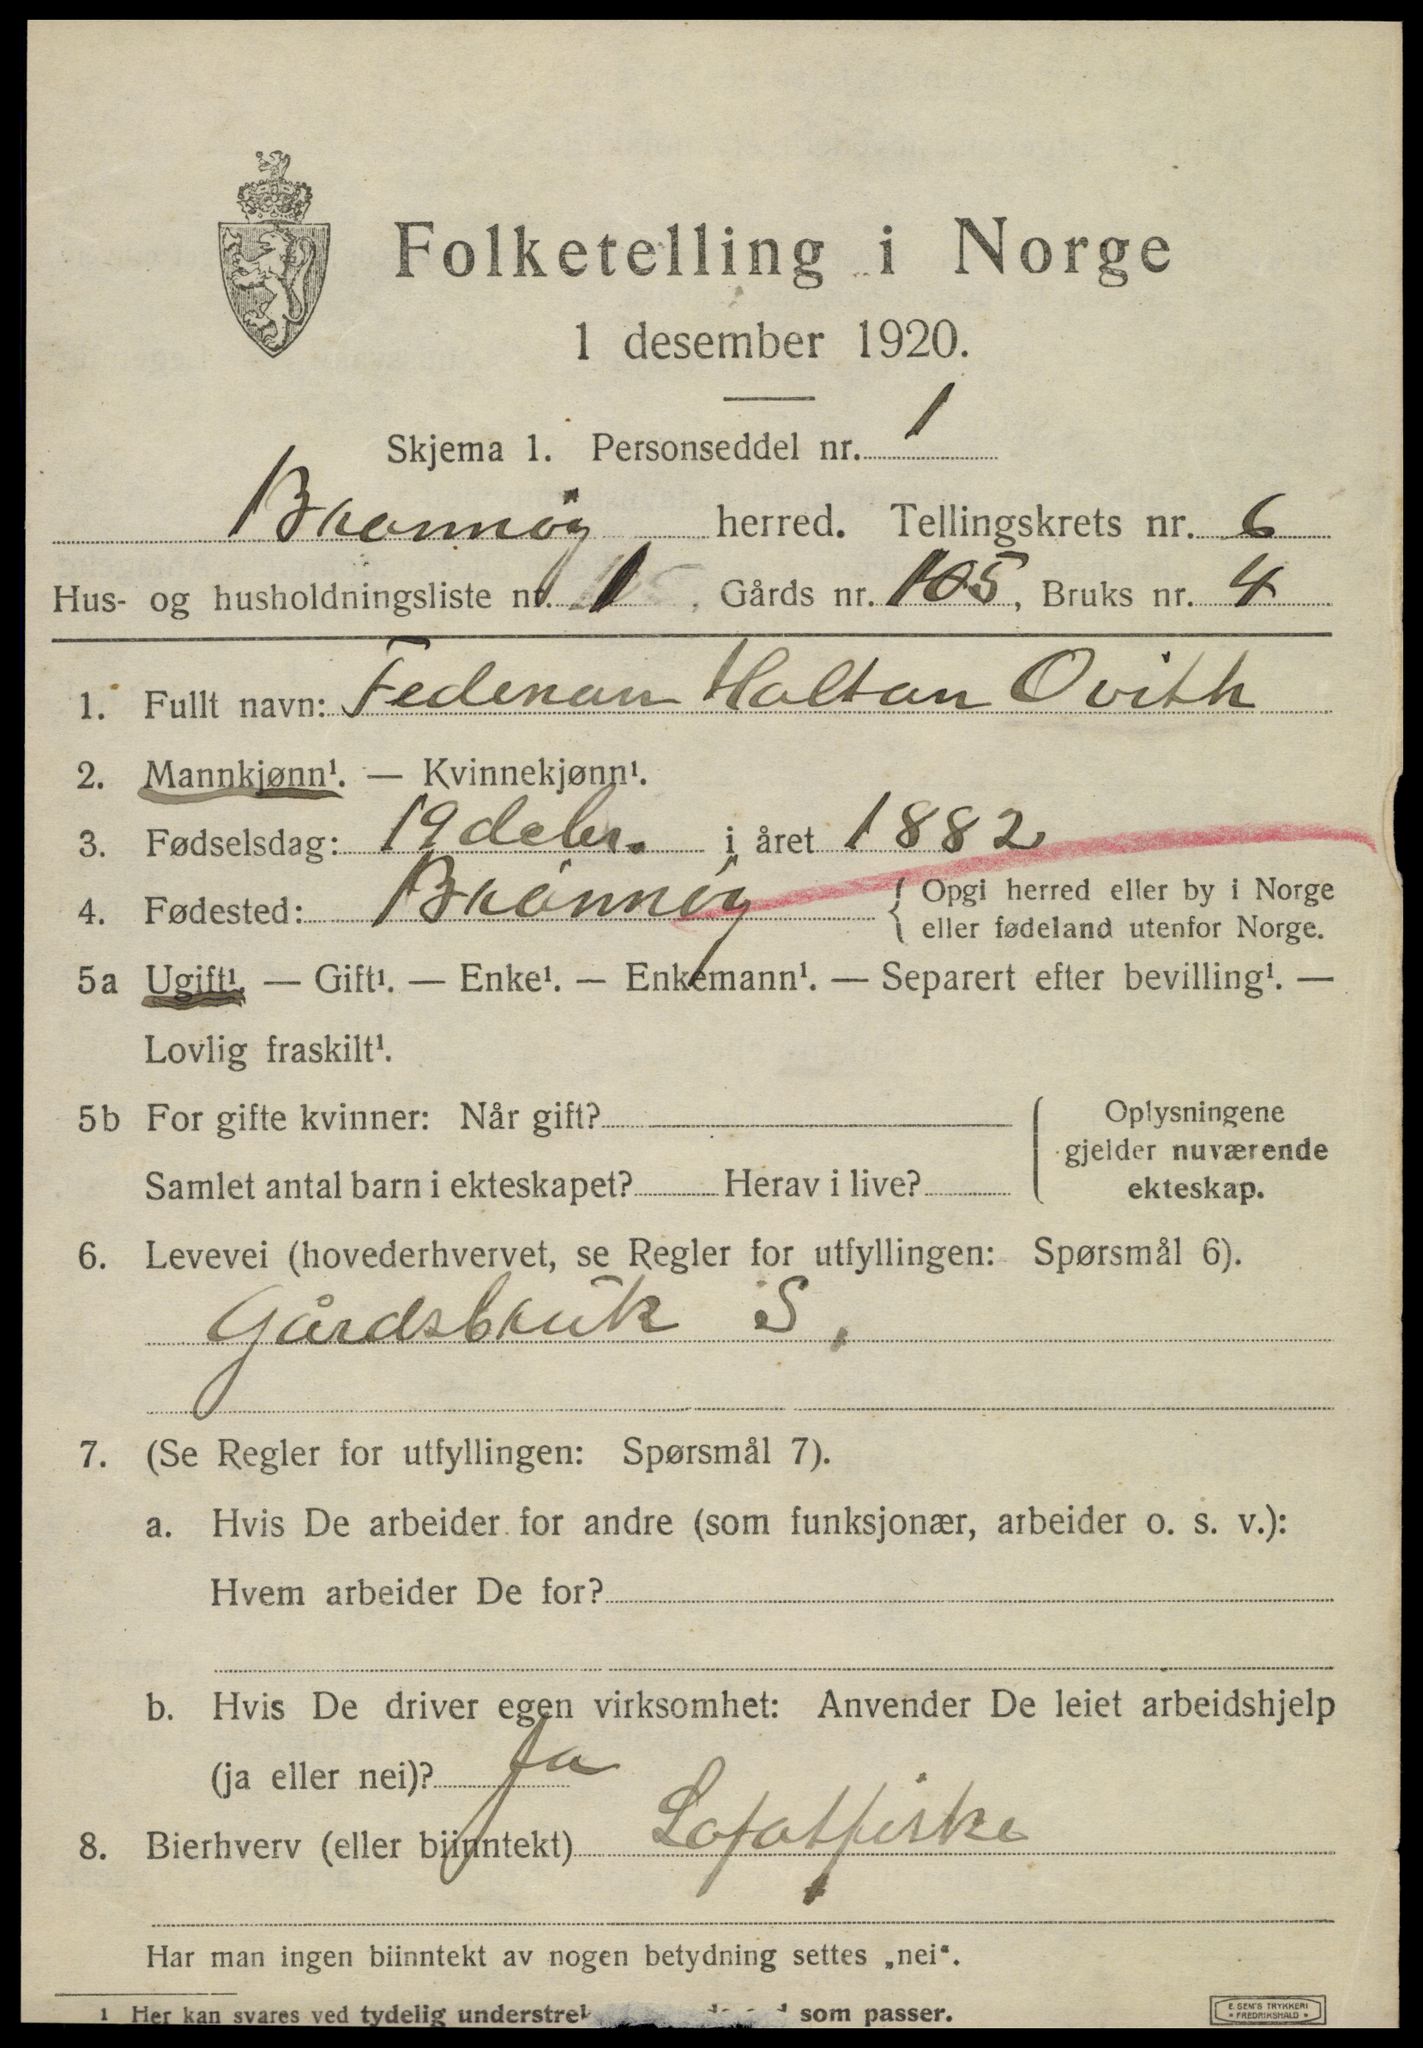 Folketelling i Norge
1 desember 1920.
Skjema 1. Personseddel nr. 1
Brønnøy herred. Tellingskrets nr. 6
Hus- og husholdningsliste nr. 1, Gårds nr. 105, Bruks nr. 4
1. Fullt navn: Federian Holtan Ovith
2. Mannkjønn¹. — Kvinnekjønn¹.
3. Fødselsdag: 19 debr. i året 1882
4. Fødested: Brønnøy { Opgi herred eller by i Norge
eller fødeland utenfor Norge.
5a Ugift¹. — Gift¹. — Enke¹. — Enkemann¹. — Separert efter bevilling¹. —
Lovlig fraskilt¹.
5b For gifte kvinner: Når gift?
Samlet antal barn i ekteskapet? Herav i live?
Oplysningene
gjelder nuværende
ekteskap.
6. Levevei (hovederhvervet, se Regler for utfyllingen: Spørsmål 6).
Gårdsbruk S.
7. (Se Regler for utfyllingen: Spørsmål 7).
a. Hvis De arbeider for andre (som funksjonær, arbeider o. s. v.):
Hvem arbeider De for?
b. Hvis De driver egen virksomhet: Anvender De leiet arbeidshjelp
(ja eller nei)? Ja
8. Bierhverv (eller biinntekt) Lofotfiske
Har man ingen biinntekt av nogen betydning settes „nei“.
1 Her kan svares ved tydelig understrek som passer.
E. SEM'S TRYKKERI
FREDRIKSHALD